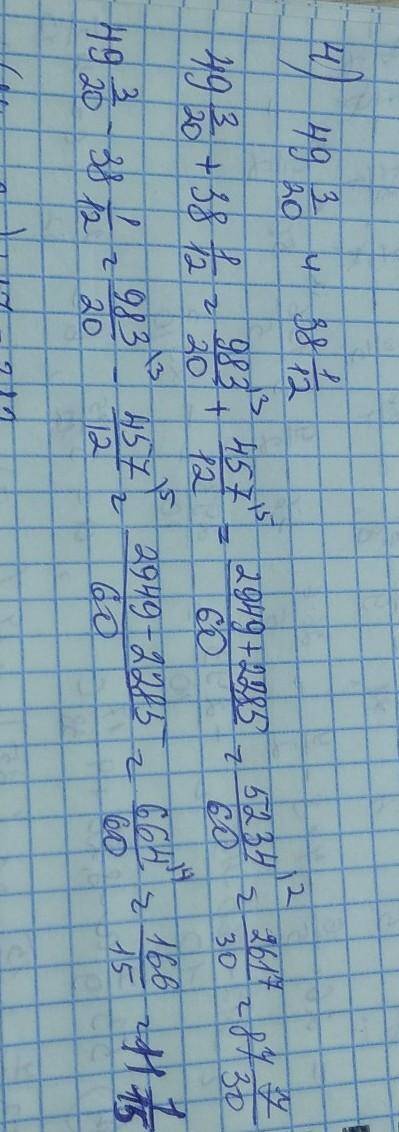 4) 49 3/20 и 38 1/12
49 3/20 + 38 1/12 = 983/20 \3 + 457/12 \5 = 2949+2285/60 = 5234/60 \2 = 2617/30 = 87 7/30
49 3/20 - 38 1/12 = 983/20 \3 - 457/12 \5 = 2949-2285/60 = 664/60 \4 = 166/15 = 11 1/15